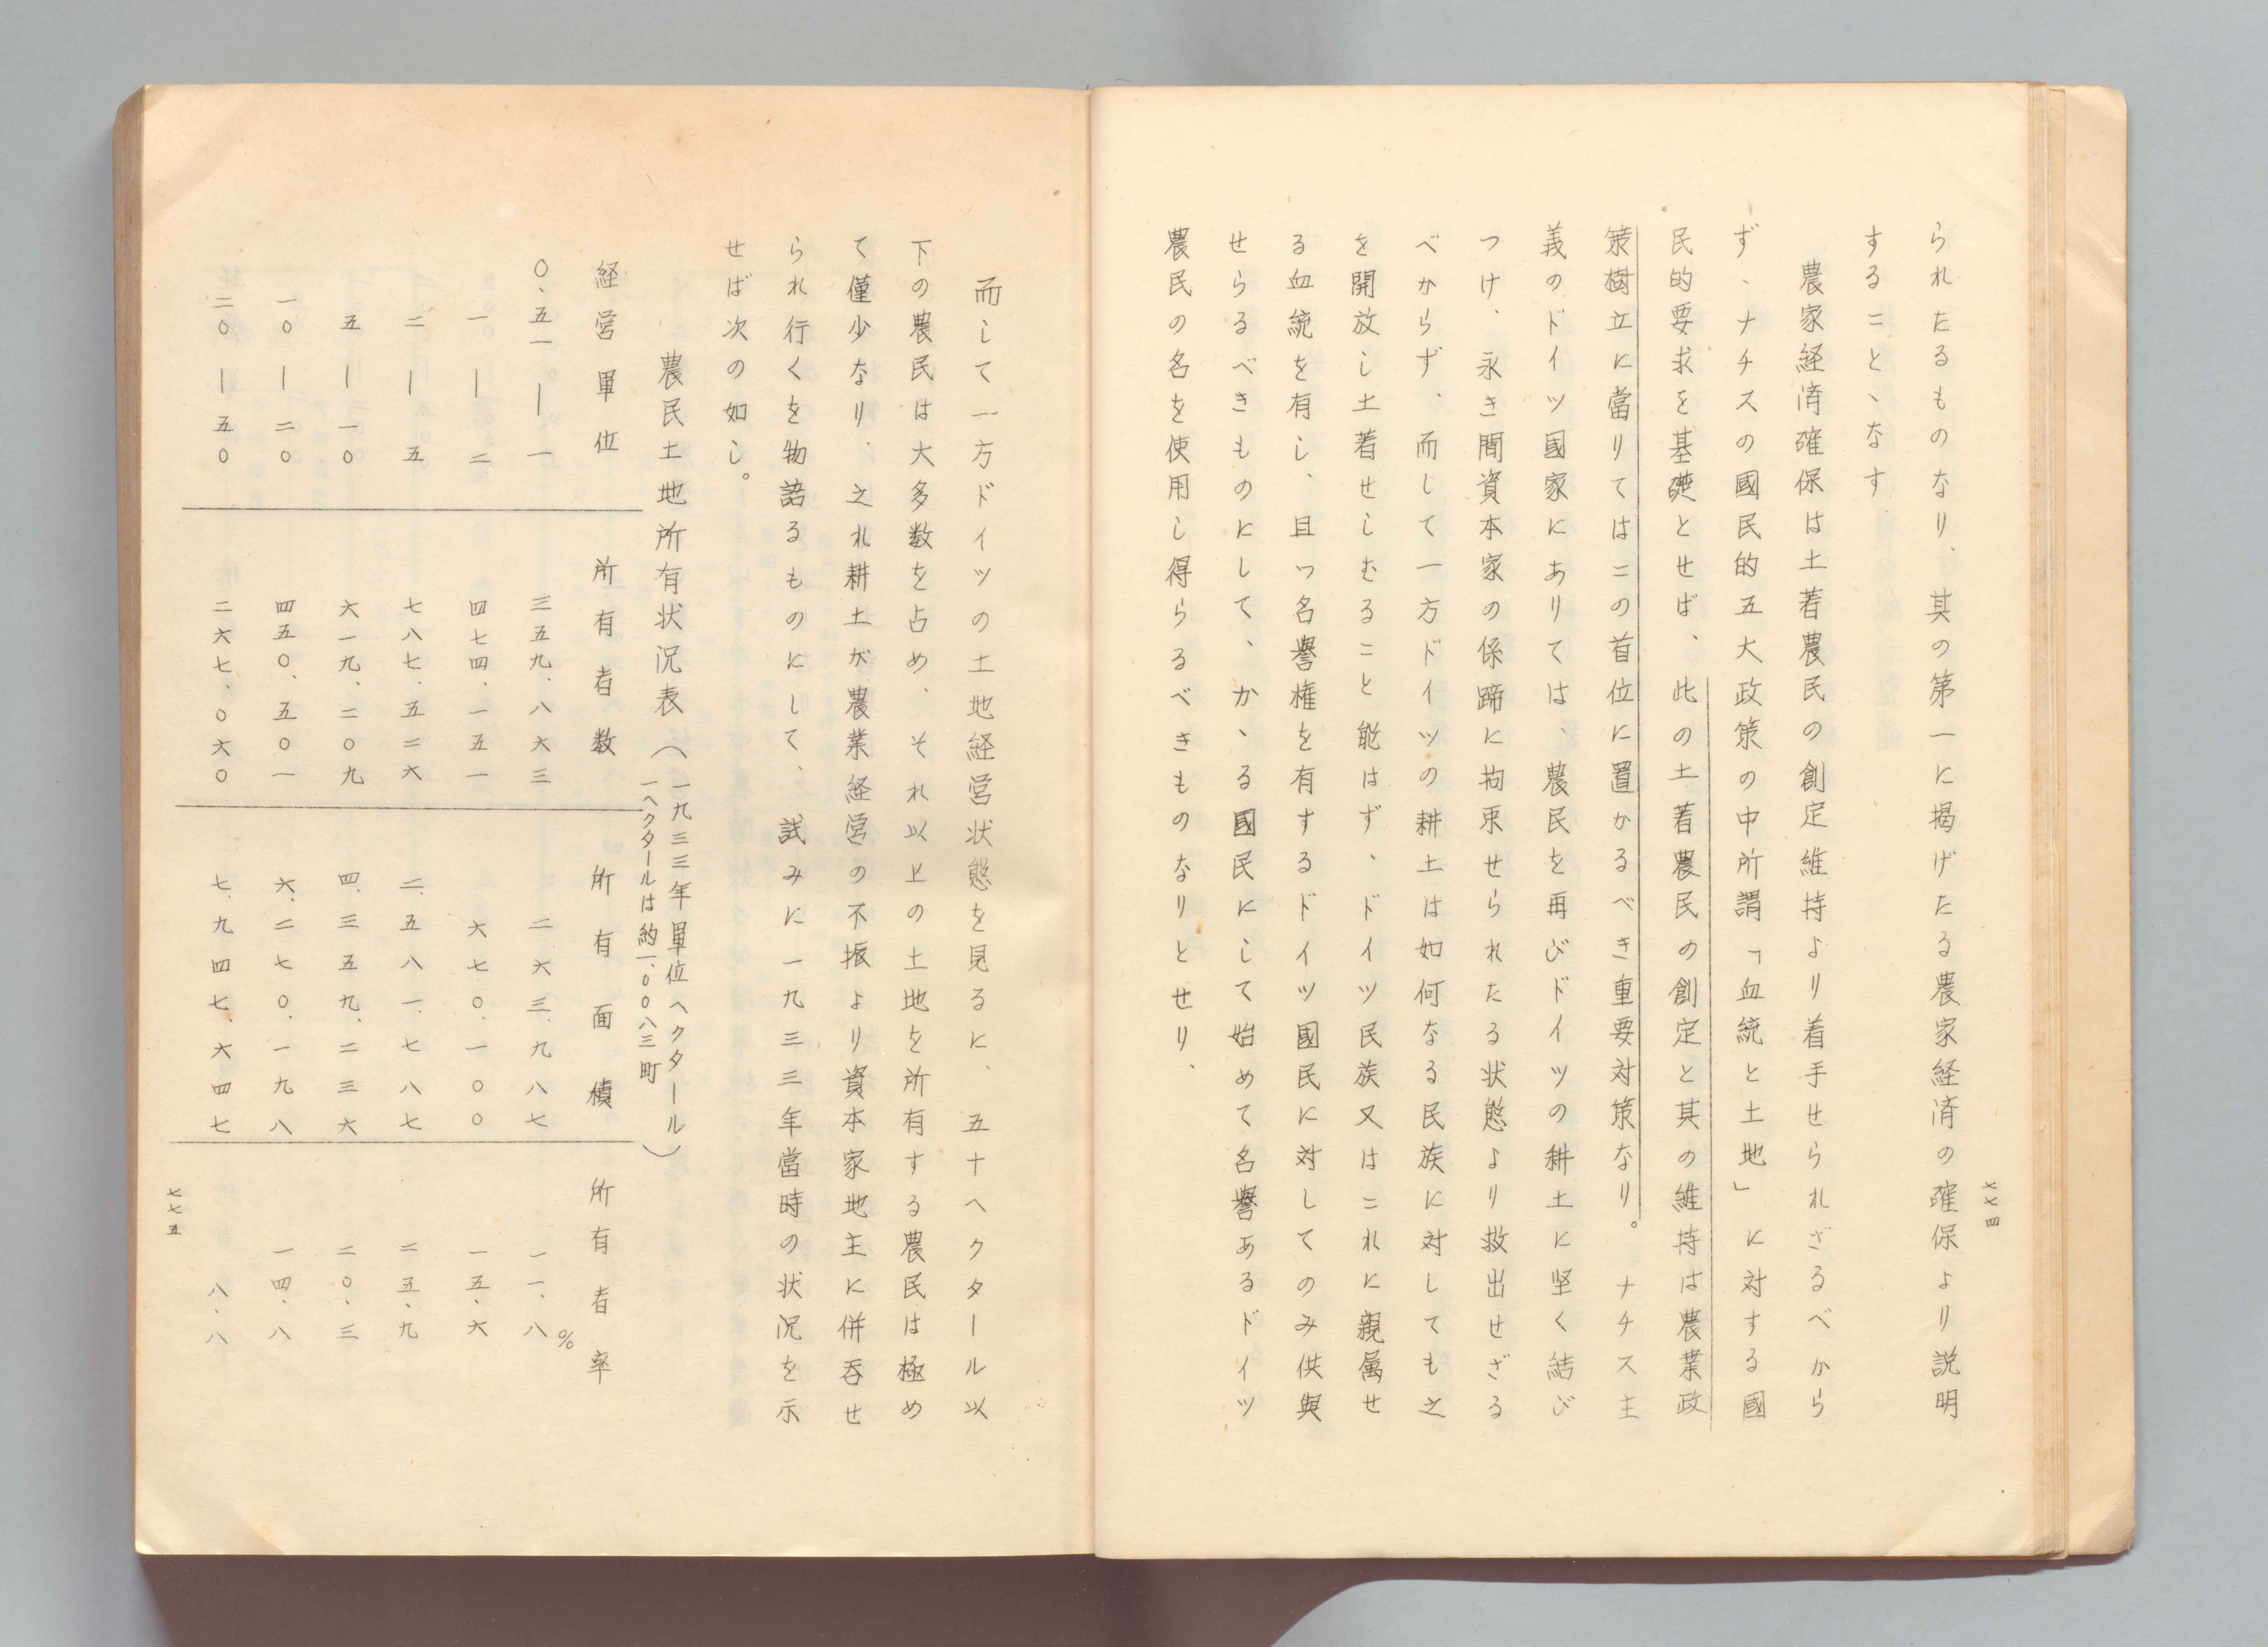 られたるものなり、其の第一に掲げたる農家経済の確保より説明
することゝなす
農家経済確保は土着農民の創定維持より着手せられざるべから
ず、ナチスの國民的五大政策の中所謂「血統と土地」に対する國
民的要求を基礎とせば、此の土着農民の創定と其の維持は農業政
策樹立に當りてはこの首位に置かるべき重要対策なり。ナチス主
義のドイツ國家にありては、農民を再びドイツの耕土に坚く結び
つけ、永き間資本家の係蹄に拘束せられたる状態より救出せざる
べからず、而して一方ドイツの耕土は如何なる民族に対しても之
を開放し土着せしむること能はず、ドイツ民族又はこれに親属せ
る血統を有し、且つ名譽権を有するドイツ國民に対してのみ供與
せらるべきものにして、かゝる國民にして始めて名譽あるドイツ
農民の名を使用し得らるべきものなりとせり、
七七四
而して一方ドイツの土地経営状態を見るに、五十ヘクタール以
下の農民は大多数を占め、それ以上の土地を所有する農民は極め
て僅少なり、之れ耕土が農業経営の不振より資本家地主に併呑せ
られ行くを物語るものにして、試みに一九三三年當時の状況を示
せば次の如し。
農民土地所有状況表（一九三三年單位ヘクタール
一ヘクタールは約一、〇〇八三町）
経営單位 所有者数 所有面積 所有者率
〇、五一―一 三五九、八六三 二六三、九八七 一一、八%
一―二 四七四、一五一 六七〇、一〇〇 一五、六
二―五 七八七、五二六 二、五八一、七八七 二五、九
五―一〇 六一九、二〇九 四、三五九、二三六 二〇、三
一〇―二〇 四五〇、五〇一 六、二七〇、一九八 一四、八
二〇―五〇 二六七、〇六〇 七、九四七、六四七 八、八
七七五